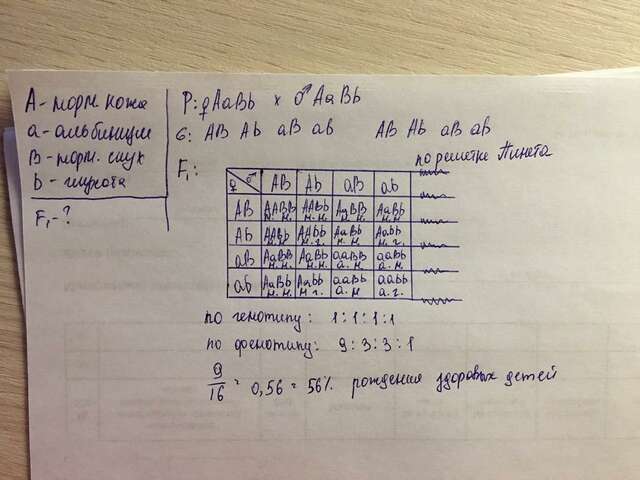 А - норм. кожа
а - альбинизм
В - норм. слух
b - глухота
F₁ - ?
P: ♀ АаВb × ♂ АаВb
G: АВ Аb аВ аb АВ Аb аВ аb
F₁:
по решетке Пинета
♀ ♂ АВ Аb аВ аb
АВ ААВВ ААВb АаВВ АаВb
н. н. н. н. н. н. н. н.
Аb ААВb ААbb АаВb Ааbb
н. н. н. г. н. н. н. г.
аВ АаВВ АаВb ааВВ ааВb
н. н. н. н. а. н. а. н.
аb АаВb Ааbb ааВb ааbb
н. н. н. г. а. н. а. г.
по генотипу: 1:1:1:1
по фенотипу: 9:3:3:1
9/16 = 0,56 = 56% рождения здоровых детей